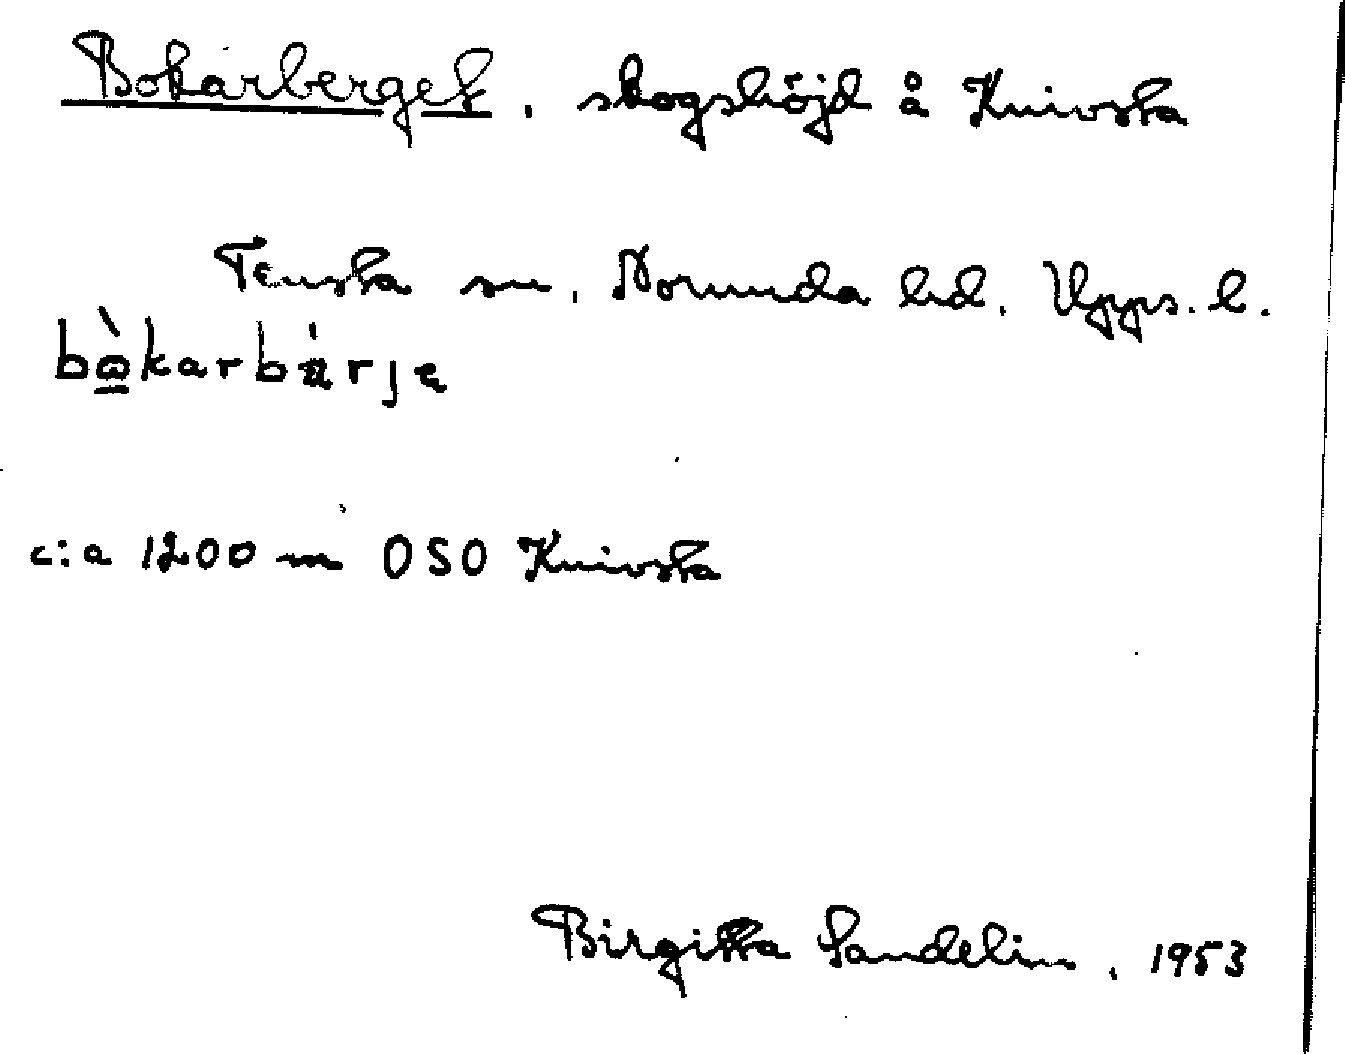 Bokarberget, skogshöjd å Knivsta
Tensta sn, Norunda hd. Upps. l.
bὼkarbärje
c:a 1200 m OSO Knivsta
Birgitta Sandelin, 1953